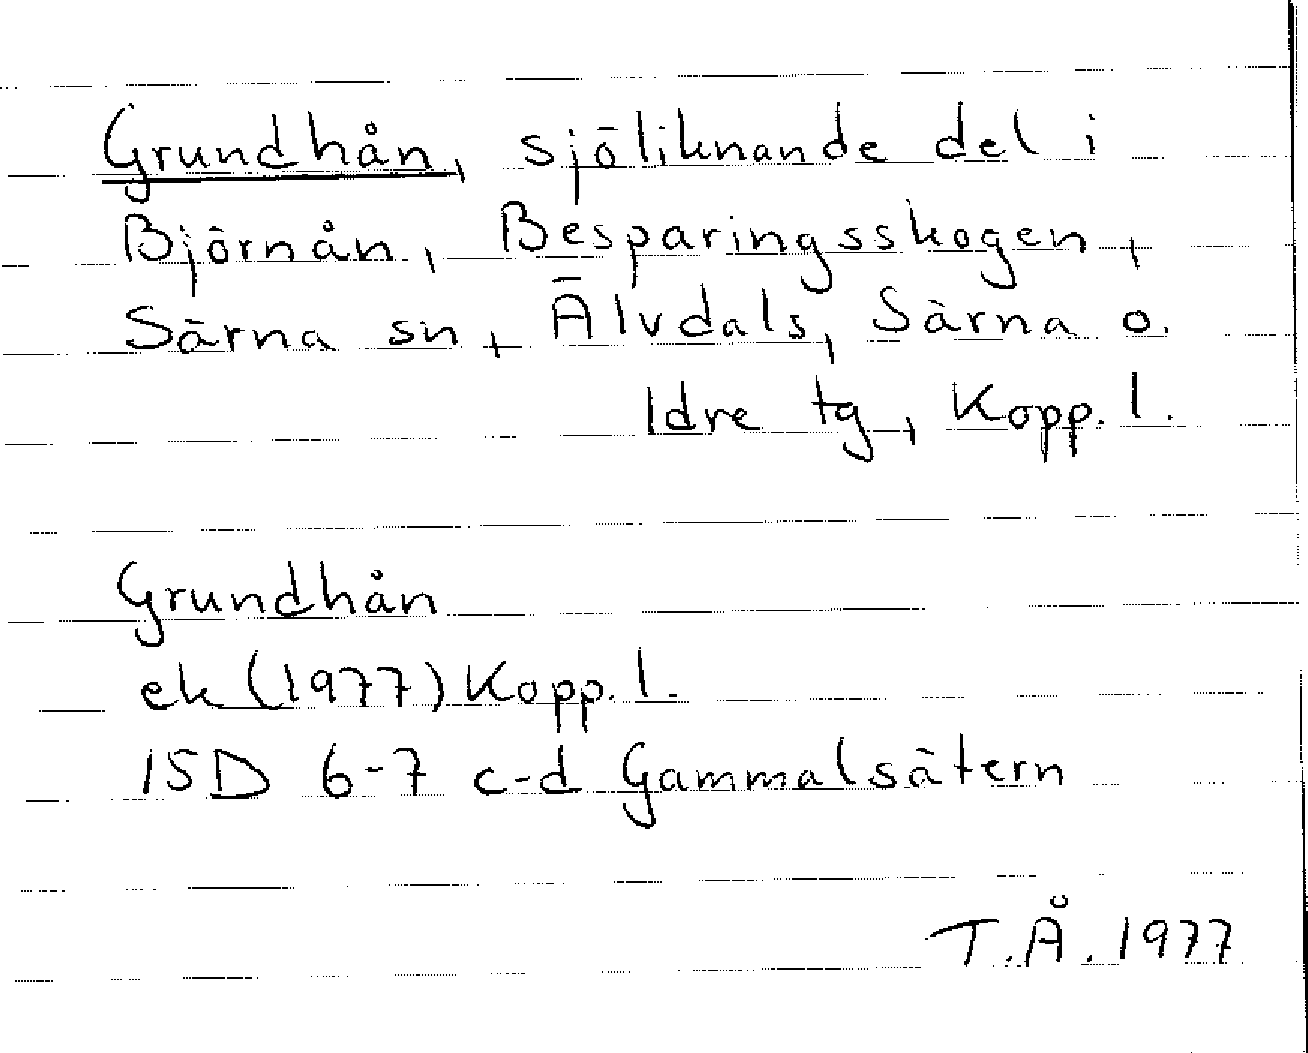 Grundhån, sjöliknande del i
Björnån, Besparingsskogen,
Särna sn, Älvdals, Särna o.
Idre tg, Kopp. l.
Grundhån
ek (1977) Kopp. l.
15D 6-7 c-d Gammalsätern
T.Å. 1977